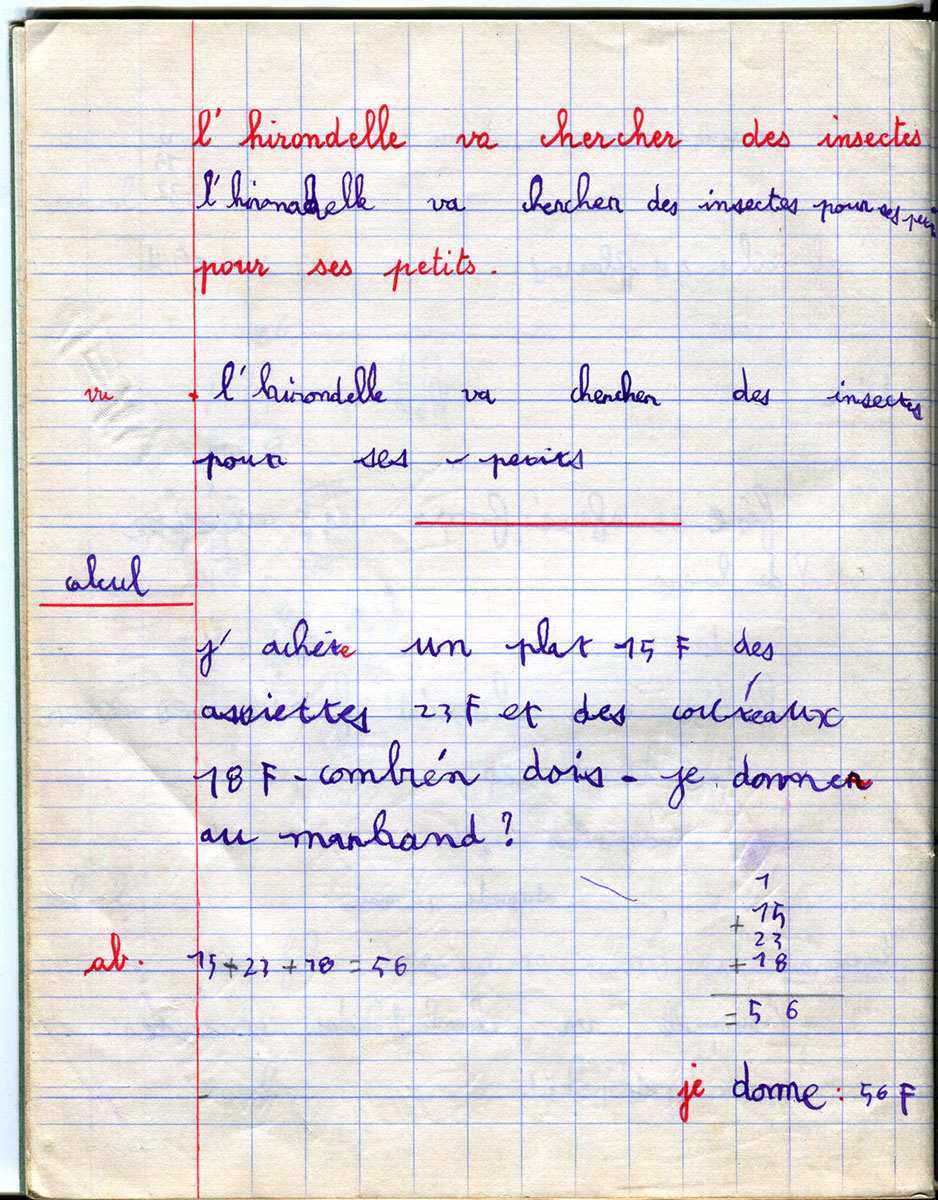 l'hirondelle va chercher des insectes
l'hironadelle va chercher des insectes pour ses peti
pour ses petits.
vu l'hirondelle va chercher des insectes
pour ses petits
calcul
j'achète un plat 15 F des
assiettes 23 F et des coutéaux
18 F - combién dois - je donner
au marhand ?
1
+ 15
23
ab. 15 + 23 + 18 = 56 + 18
= 5 6
je donne : 56 F